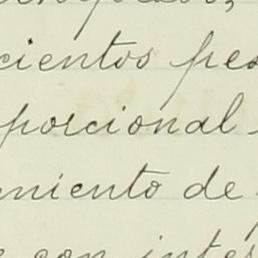 cientos pes
porcional
miento de
con intes